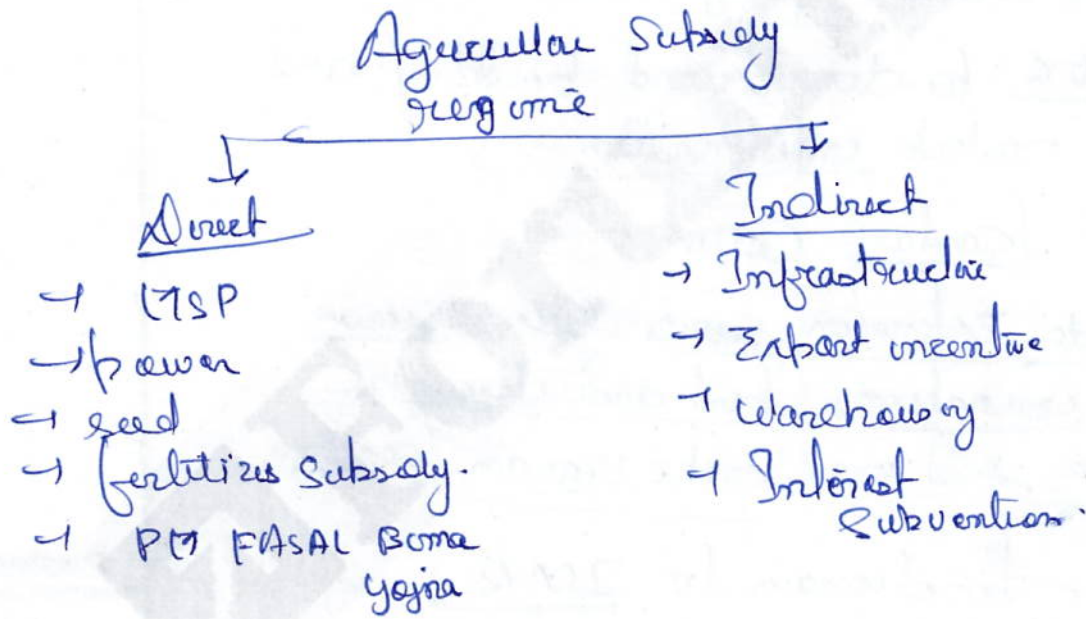 Agricultur Subsidy
regime
Direct
→ MSP
→ power
→ seed
→ fertilizer Subsidy.
→ PM FASAL Bima
Yojna
Indirect
→ Infrastructure
→ Export incentive
→ Warehousing
→ Interest
Subvention.